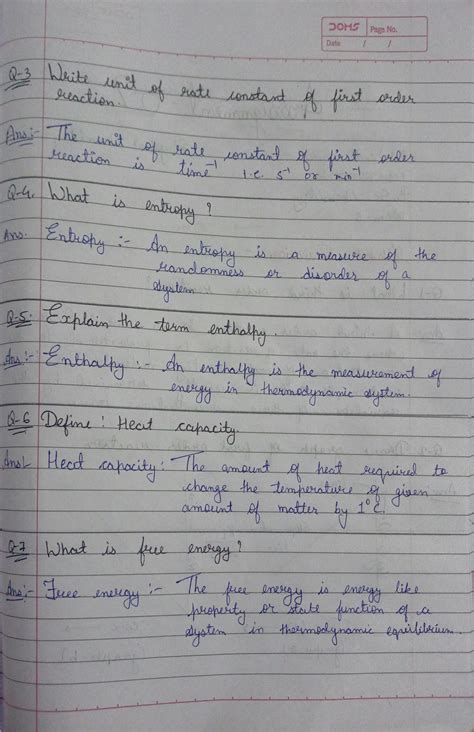 DOMS Page No.
Date / /
Q-3 Write unit of rate constant of first order
reaction.
Ans:- The unit of rate constant of first order
reaction is time⁻¹ i.e. s⁻¹ or min⁻¹
Q-4. What is entropy ?
Ans. Entropy :- An entropy is a measure of the
randomness or disorder of a
system.
Q-5. Explain the term enthalpy.
Ans:- Enthalpy :- An enthalpy is the measurement of
energy in thermodynamic system.
Q-6 Define : Heat capacity.
Ans:- Heat capacity : The amount of heat required to
change the temperature of given
amount of matter by 1°C.
Q-7 What is free energy?
Ans:- Free energy :- The free energy is energy like
property or state function of a
system in thermodynamic equilibrium.